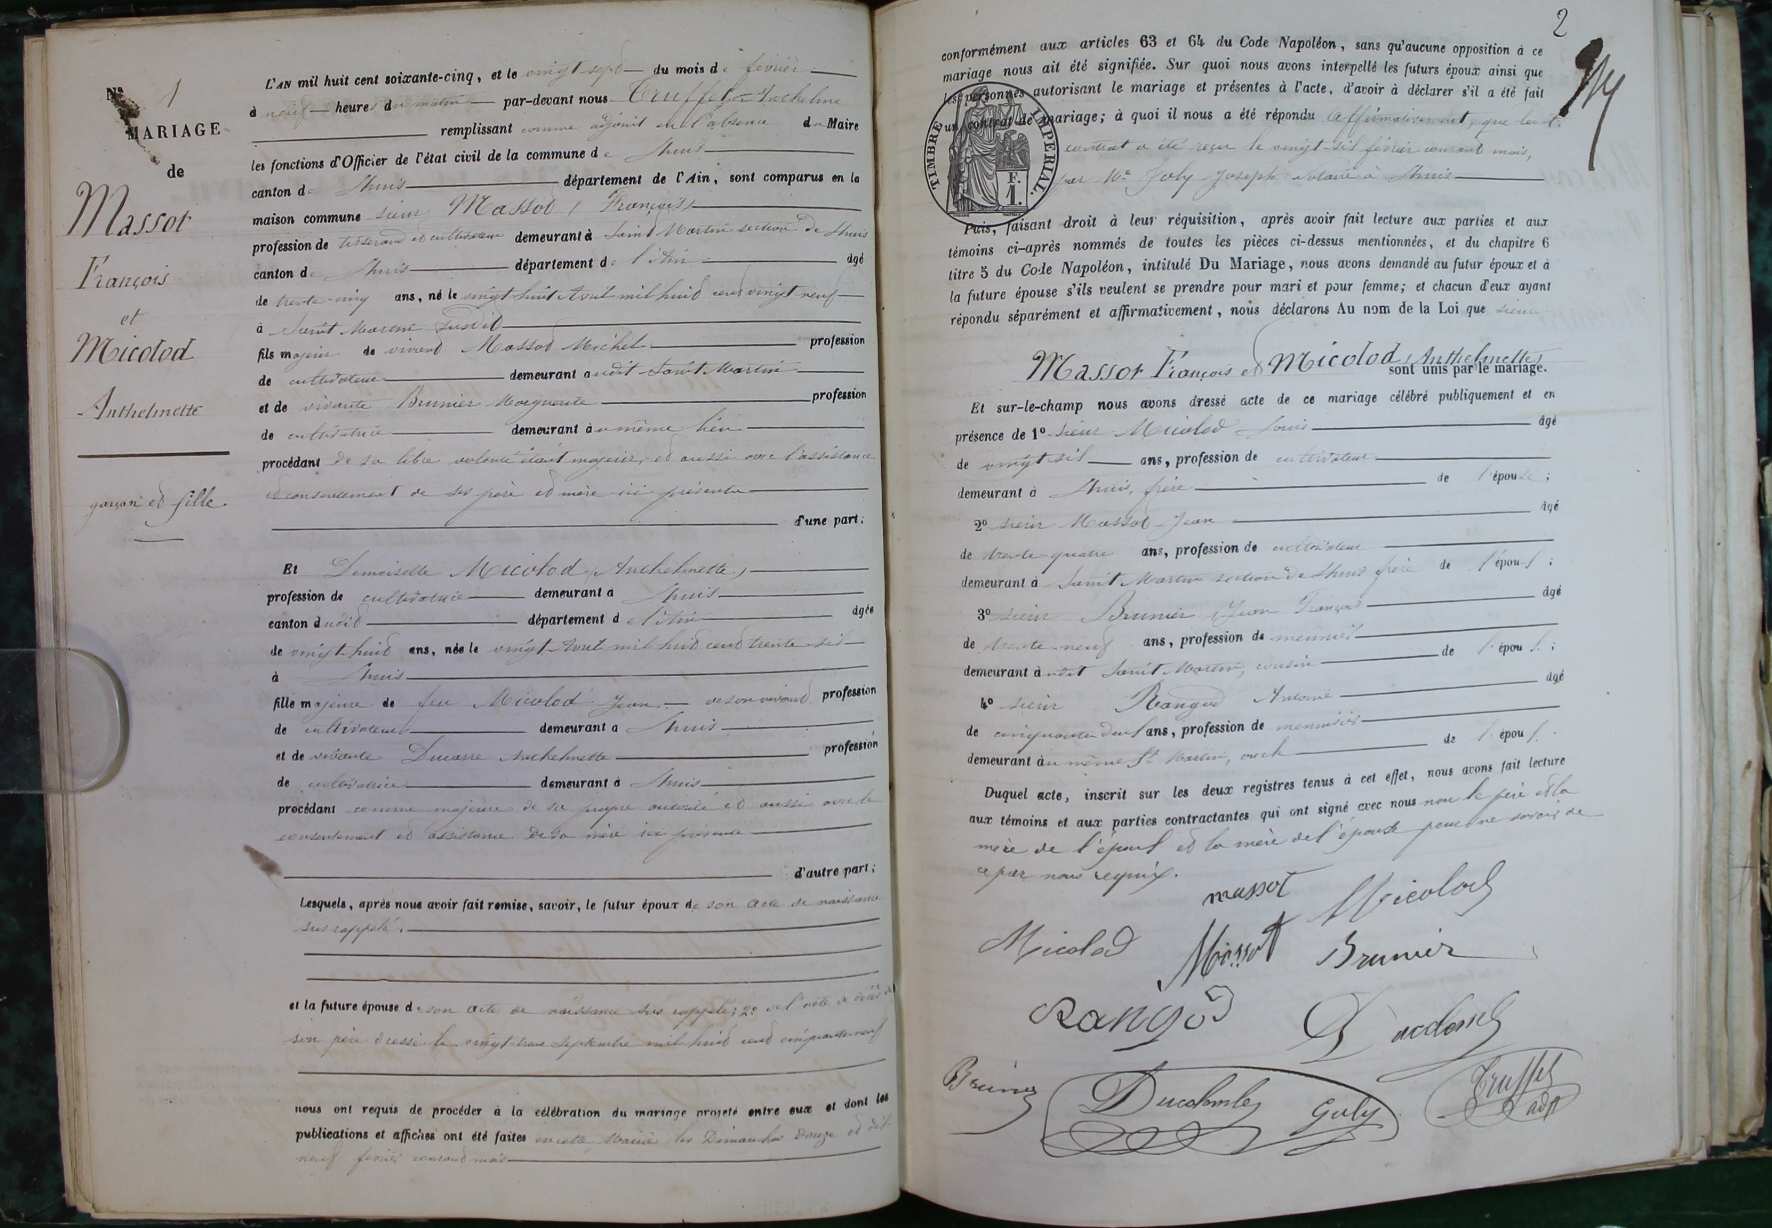 Nº 1
MARIAGE
de
Massot
François
et
Micolod
Anthelmette
garçon et fille
L'AN mil huit cent soixante-cinq, et le vingt sept du mois de février
à neuf heures du matin par-devant nous Truffet Anthelme
remplissant comme adjoint en l'absence du Maire
les fonctions d'Officier de l'état civil de la commune de Lhuis
canton de Lhuis département de l'Ain, sont comparus en la
maison commune sieur Massot (François)
profession de tisserand et cultivateur demeurant à Saint Martin section de Lhuis
canton de Lhuis département de l'Ain âgé
de trente-cinq ans, né le vingt huit Avril mil huit cent vingt neuf
à Saint Martin susdit
fils majeur de vivant Massot Michel profession
de cultivateur demeurant audit Saint Martin
et de vivante Brunier Marguerite profession
de cultivatrice demeurant au même lieu
procédant de sa libre volonté étant majeur, et aussi avec l'assistance
et consentement de ses père et mère ici présents
d'une part;
Et Demoiselle Micolod (Anthelmette)
profession de cultivatrice demeurant à Lhuis
canton dudit département de l'Ain âgée
de vingt huit ans, née le vingt Avril mil huit cent trente-six
à Lhuis
fille majeure de feu Micolod Jean de son vivant profession
de cultivateur demeurant à Lhuis
et de vivante Ducarre Anthelmette profession
de cultivatrice demeurant à Lhuis
procédant comme majeure de sa propre autorité et aussi avec le
consentement et assistance de sa mère ici présente
d'autre part;
Lesquels, après nous avoir fait remise, savoir, le futur époux de son acte de naissance
sus rappelé.
et la future épouse de son acte de naissance sus rappelé; 2º de l'acte de décès de
son père dressé le vingt trois septembre mil huit cent cinquante-neuf
nous ont requis de procéder à la célébration du mariage projeté entre eux et dont les
publications et affiches ont été faites en cette Mairie les Dimanches douze et dix-
neuf février courant mois
2
conformément aux articles 63 et 64 du Code Napoléon, sans qu'aucune opposition à ce
mariage nous ait été signifiée. Sur quoi nous avons interpellé les futurs époux ainsi que
les personnes autorisant le mariage et présentes à l'acte, d'avoir à déclarer s'il a été fait
un contrat de mariage; à quoi il nous a été répondu affirmativement, que led.
contrat a été reçu le vingt-six février courant mois,
par Me Joly Joseph notaire à Lhuis
TIMBRE IMPERIAL.
F.
1.
Puis, faisant droit à leur réquisition, après avoir fait lecture aux parties et aux
témoins ci-après nommés de toutes les pièces ci-dessus mentionnées, et du chapitre 6
titre 5 du Code Napoléon, intitulé Du Mariage, nous avons demandé au futur époux et à
la future épouse s'ils veulent se prendre pour mari et pour femme; et chacun d'eux ayant
répondu séparément et affirmativement, nous déclarons Au nom de la Loi que sieur
Massot François et Micolod (Anthelmette)
sont unis par le mariage.
Et sur-le-champ nous avons dressé acte de ce mariage célébré publiquement et en
présence de 1º sieur Micolod Louis âgé
de vingt six ans, profession de cultivateur
demeurant à Lhuis, frère de l'épouse;
2º sieur Massot Jean âgé
de trente-quatre ans, profession de cultivateur
demeurant à Saint Martin section de Lhuis frère de l'époux;
3º sieur Brunier Jean François âgé
de trente-neuf ans, profession de
demeurant audit Saint Martin, cousin de l'époux;
4º sieur Rangod Antoine âgé
de cinquante deux ans, profession de menuisier
demeurant au même St Martin, oncle de l'époux.
Duquel acte, inscrit sur les deux registres tenus à cet effet, nous avons fait lecture
aux témoins et aux parties contractantes qui ont signé avec nous non le père et la
mère de l'époux et la mère de l'épouse pour ne savoir de
ce par nous requis.
massot Micolod
Micolod Massot Brunier
Rangod
Ducolomb Joly
Truffet
adjt